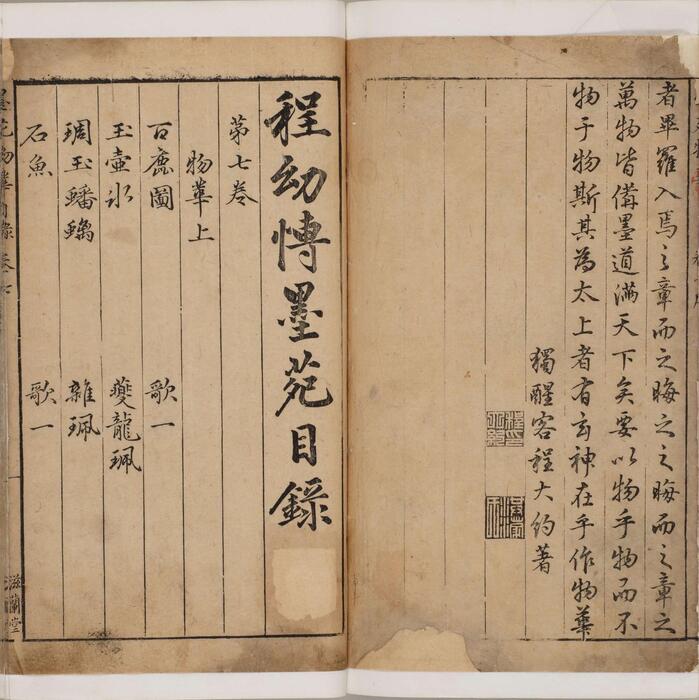 者畢羅入焉之章而之晦之之晦而之章之
萬物皆備墨道滿天下矣要以物乎物而不
物于物斯其為太上者有玄神在乎作物華
獨醒客程大約著
程幼博墨苑目錄
第七卷
物華上
百鹿圖
歌一
玉壺冰
夔龍珮
琱玉蟠螭
雜珮
石魚
歌一
墨苑物華目錄
卷七
一
滋蘭堂